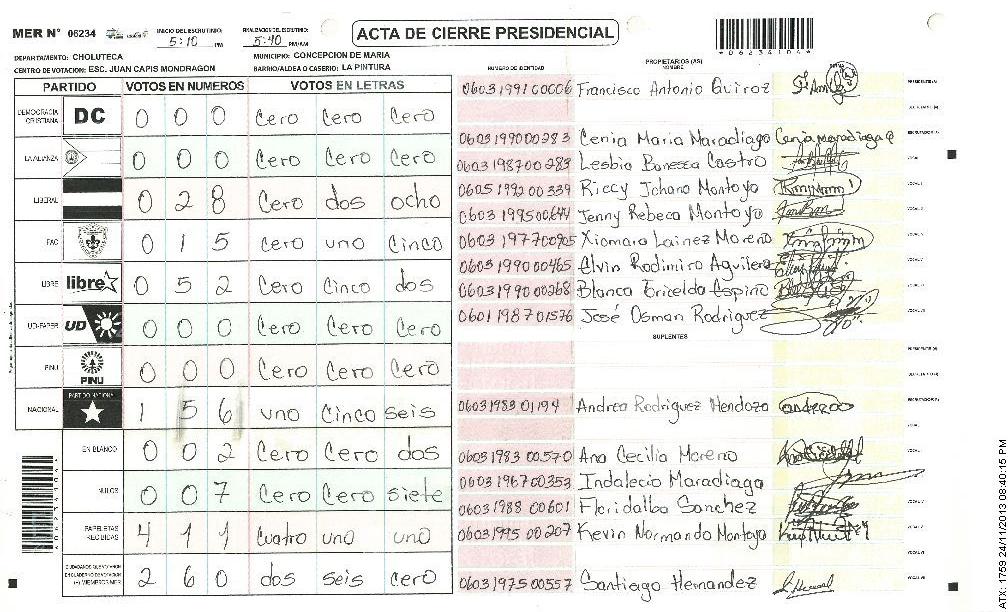 MER N° 06234
INICIO DEL ESCRUTINIO: 5:10 PM
FINALIZACION DEL ESCRUTINIO: 5:40 PM/AM
ACTA DE CIERRE PRESIDENCIAL
*06234104*
DEPARTAMENTO: CHOLUTECA
MUNICIPIO: CONCEPCION DE MARIA
CENTRO DE VOTACION: ESC. JUAN CAPIS MONDRAGON
BARRIO/ALDEA O CASERIO: LA PINTURA
PARTIDO VOTOS EN NUMEROS VOTOS EN LETRAS
DEMOCRACIA CRISTIANA DC 0 0 0 Cero Cero Cero
LA ALIANZA 0 0 0 Cero Cero Cero
LIBERAL 0 2 8 Cero dos ocho
PAC 0 1 5 Cero uno Cinco
LIBRE libre 0 5 2 Cero Cinco dos
UD-FAPER UD 0 0 0 Cero Cero Cero
PINU PINU 0 0 0 Cero Cero Cero
NACIONAL PARTIDO NACIONAL 1 5 6 uno Cinco seis
EN BLANCO 0 0 2 Cero Cero dos
NULOS 0 0 7 Cero Cero siete
PAPELETAS RECIBIDAS 4 1 1 Cuatro uno uno
2 6 0 dos seis Cero
NUMERO DE IDENTIDAD
PROPIETARIOS (AS)
NOMBRE
FIRMA
0603199100006 Francisco Antonio Quiroz
0603199000283 Cenia Maria Maradiago Cenia maradiaga
0603198700289 Lesbia Banessa Castro
0605199200339 Riccy Johana Montoyo
0603199500644 Jenny Rebeca Montoyo
0603197700905 Xiomara Lainez Moreno
0603199000465 Elvin Rodimiro Aguilera
0603199000268 Blanca Ericelda Espino
0601198701576 José Osman Rodriguez
SUPLENTES
0603198301194 Andrea Rodriguez Mendoza
0603198300570 Ana Cecilia Moreno
0603196700353 Indalecio Maradiaga
0603198800601 Floridalba Sanchez
0603199500207 Kevin Normando Montoyo
0603197500557 Santiago Hernandez
ATX: 1759 24/11/2013 08:40:15 PM